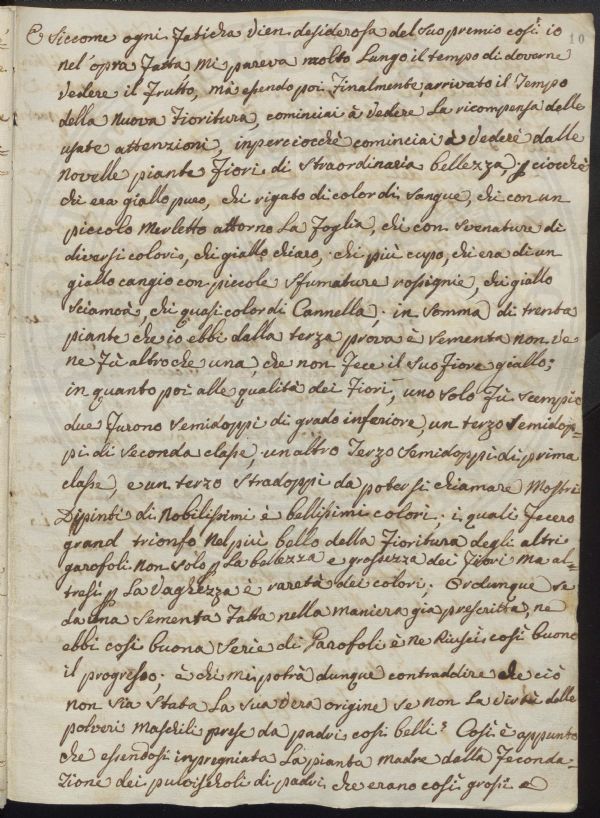 10
E siccome ogni faticha vien desiderosa del suo premio così io
nel'opra fatta mi pareva molto lungo il tempo di doverne
vedere il frutto, mà essendo poi finalmente arrivato il tempo
della nuova fioritura, cominciai à vedere la ricompensa delle
usate attenzioni, inperciocchè cominciai à vedere dalle
novelle piante fiori di straordinaria bellezza, ꝑciocchè
chi era giallo puro, chi rigato di color di sangue, chi con un
piccolo merletto attorno la foglia, chi con svenature di
diversi coloris, chi giallo chiaro, chi più cupo, chi era di un
giallo cangio con piccole sfumature rossignie, chi giallo
sciamoà, chi quasi color di Cannella; in somma di trenta
piante che io ebbi dalla terza prova è sementa non ve
ne fù altro che una, che non fece il suo fiore giallo;
in quanto poi alle qualità dei fiori, uno solo fù scempio
due furono semidoppi di grado inferiore, un terzo semidop-
pi di seconda classe, un altro terzo semidoppi di prima
classe, e un terzo stradoppi da potersi chiamare mostri
dipinti di nobilissimi è bellissimi colori; i quali fecero
grand trionfo nel più bello della fioritura degli altri
garofoli non solo ꝑ la belezza e grossezza dei fiori ma al-
tresì ꝑ la vaghezza è raretà dei colori; Ordunque se
da una sementa fatta nella maniera già prescritta, ne
ebbi così buona serie di Garofoli è ne riuscì così buono
il progresso è chi mi potrà dunque contraddire che ciò
non sia stata la sua vera origine se non la virtù delle
polveri maschili prese da padri così belli? Così è appunto
che essendosi inpregniata la pianta madre dalla feconda-
zione dei pulvischoli di padri che erano così grossi e